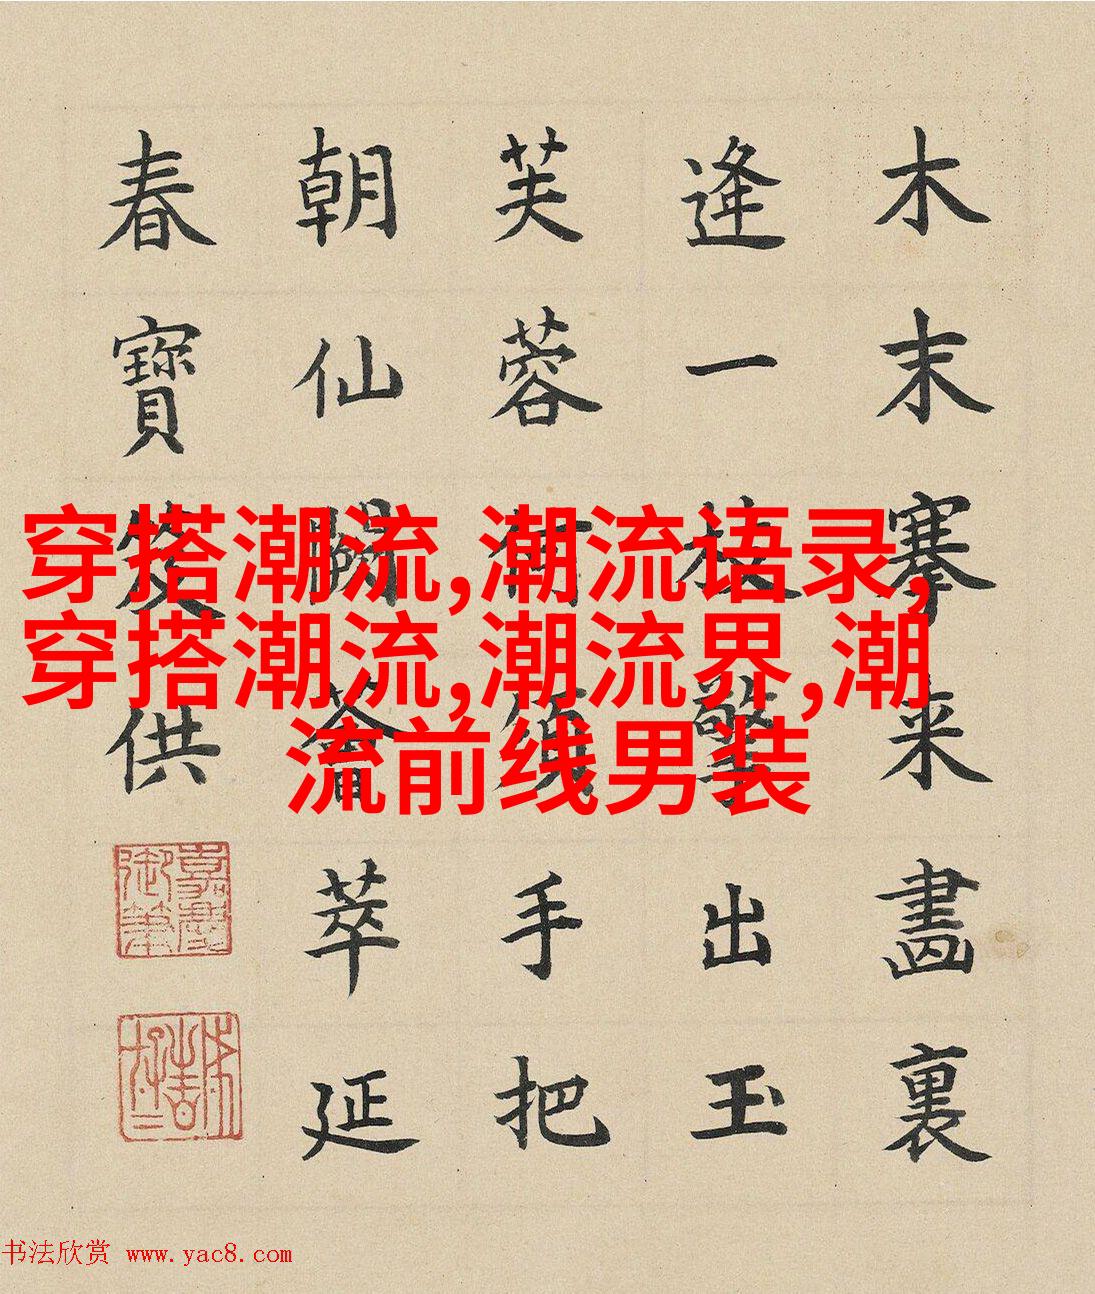 木末搴来畫裏
逢一枝擎出玉
芙蓉何須手把
朝仙闕薈萃延
春寶笈供
嘉慶
御筆
穿搭潮流,潮流语录,
穿搭潮流,潮流界,潮
流前线男装
书法欣赏 www.yac8.com